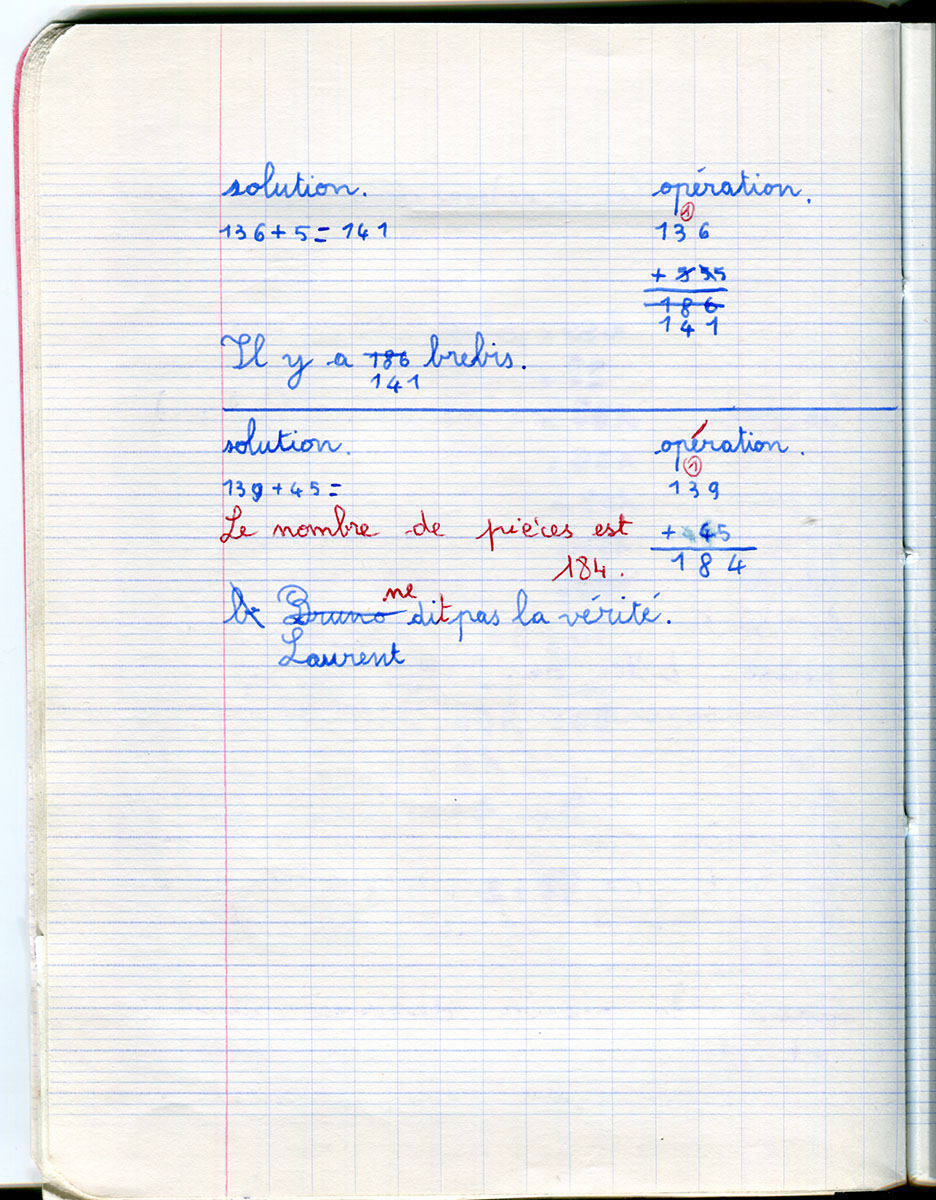 solution. opération.
1
136+5=141 136
+ 5 5 5
186
141
Il y a 186 brebis.
141
solution. opération.
1
139+45= 139
Le nombre de pièces est + 45
184. 184
ne
Bruno dit pas la vérité.
Laurent